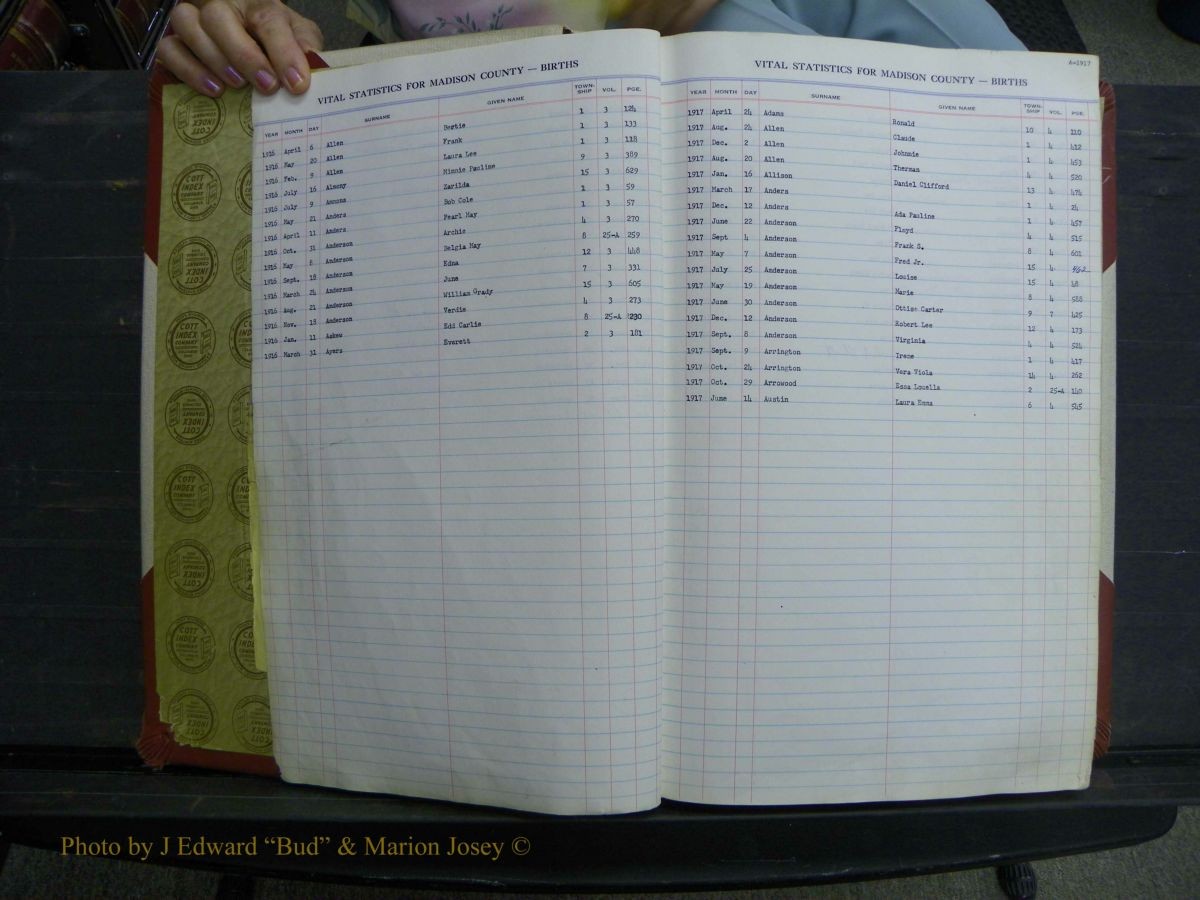 VITAL STATISTICS FOR MADISON COUNTY — BIRTHS
YEAR MONTH DAY SURNAME GIVEN NAME TOWN-SHIP VOL. PGE.
1916 April 6 Allen Bertie 1 3 124
1916 May 20 Allen Frank 1 3 133
1916 Feb. 9 Allen Laura Lee 1 3 118
1916 July 16 Almony Minnie Pauline 9 3 389
1916 July 9 Ammons Zarilda 15 3 629
1916 May 21 Anders Bob Cole 1 3 59
1916 April 11 Anders Pearl May 1 3 57
1916 Oct. 31 Anderson Archie 4 3 270
1916 May 8 Anderson Belgia May 8 25-A 259
1916 Sept. 18 Anderson Edna 12 3 448
1916 March 24 Anderson June 7 3 331
1916 Aug. 21 Anderson William Grady 15 3 605
1916 Nov. 18 Anderson Verdie 4 3 273
1916 Jan. 11 Askew Edd Carlie 8 25-A 230
1916 March 31 Ayers Everett 2 3 181
A-1917
VITAL STATISTICS FOR MADISON COUNTY — BIRTHS
YEAR MONTH DAY SURNAME GIVEN NAME TOWN-SHIP VOL. PGE.
1917 April 24 Adams Ronald 10 4 110
1917 Aug. 24 Allen Claude 1 4 412
1917 Dec. 2 Allen Johnnie 1 4 453
1917 Aug. 20 Allen Therman 4 4 520
1917 Jan. 16 Allison Daniel Clifford 13 4 474
1917 March 17 Anders 1 4 24
1917 Dec. 12 Anders Ada Pauline 1 4 457
1917 June 22 Anderson Floyd 4 4 515
1917 Sept 4 Anderson Frank S. 8 4 601
1917 May 7 Anderson Fred Jr. 15 4
1917 July 25 Anderson Louise 15 4 48
1917 May 19 Anderson Marie 8 4 588
1917 June 30 Anderson Ottise Carter 9 7 425
1917 Dec. 12 Anderson Robert Lee 12 4 173
1917 Sept. 8 Anderson Virginia 4 4 524
1917 Sept. 9 Arrington Irene 1 4 417
1917 Oct. 24 Arrington Vera Viola 14 4 262
1917 Oct. 29 Arrowood Essa Louella 2 25-A 140
1917 June 14 Austin Laura Emma 6 4 545
COTT INDEX COMPANY
Photo by J Edward “Bud” & Marion Josey ©